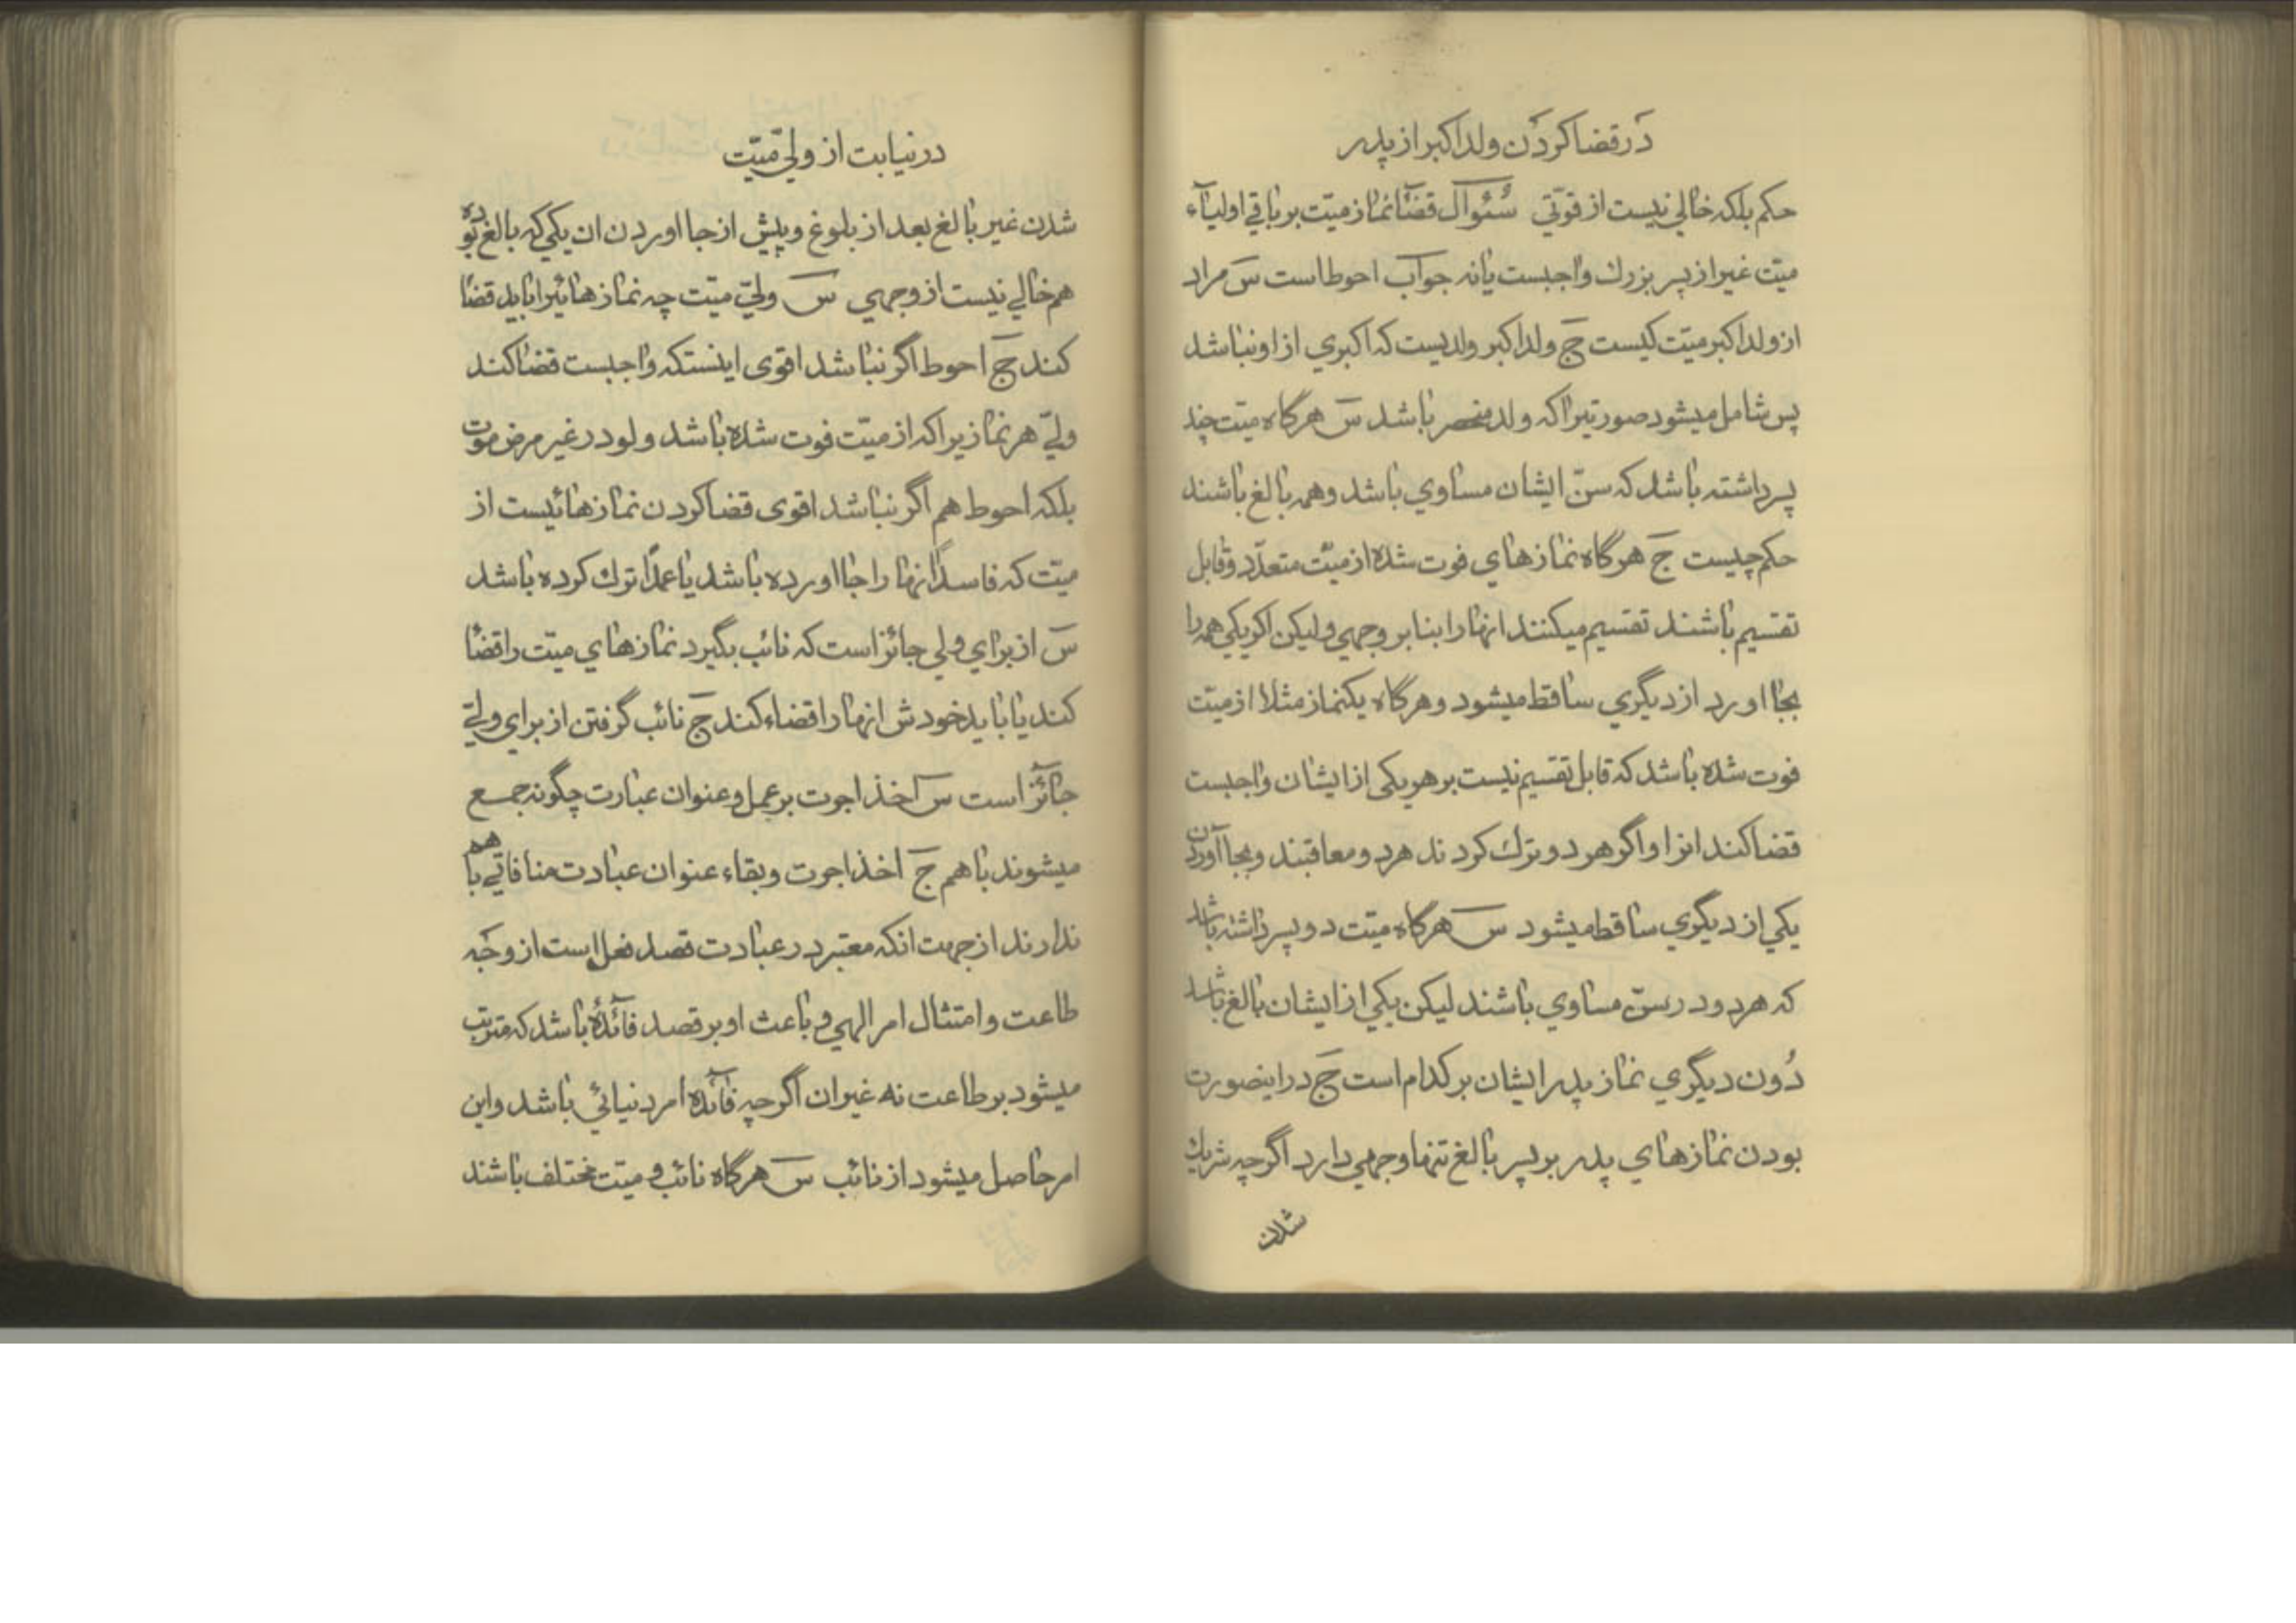 در قضا کردن ولد اکبر از پدر
حکم بلکه خالی نیست از قوتی سئوال قضا نماز میت بر باقی اولیاء
میت غیر از پسر بزرك واجبست یا نه جواب احوط است س مراد
از ولد اکبر میت کیست ج ولد اکبر ولدیست که اکبری از او نباشد
پس شامل میشود صورتیرا که ولد منحصر باشد س هرگاه میت چند
پسر داشته باشد که سن ایشان مساوی باشد و همه بالغ باشند
حکم چیست ج هر گاه نمازهای فوت شده از میت متعدد و قابل
تقسیم باشند تقسیم میکنند انها را بنا بر وجهی و لیکن اکر یکی همه را
بجا اورد از دیگری ساقط میشود و هرگاه یکنماز مثلا از میت
فوت شده باشد که قابل تقسیم نیست بر هر یکی از ایشان واجبست
قضا کند انرا و اگر هر دو ترك کردند هر دو معاقبند و بجا آوردن
یکی از دیگری ساقط میشود س هر گاه میت دو پسر داشته باشد
که هر دو در سن مساوی باشند لیکن یکی از ایشان بالغ باشد
دُون دیگری نماز پدر ایشان بر کدام است ج در اینصورت
بودن نمازهای پدر بر پسر بالغ تنها وجهی دارد اگر چه شریك
شدن
در نیابت از ولی میّت
شدن غیر بالغ بعد از بلوغ و پیش از جا اوردن ان یکی که بالغ بوده
هم خالی نیست از وجهی س ولیّ میت چه نمازهائیرا باید قضا
کند ج احوط اگر نباشد اقوی اینستکه واجبست قضا کند
ولیّ هر نمازیرا که از میّت فوت شده باشد و لو در غیر مرض موت
بلکه احوط هم اگر نباشد اقوی قضا کردن نمازهائیست از
میّت که فاسداً انها را جا اورده باشد یا عمداً ترك کرده باشد
س از برای ولی جائز است که نائب بگیرد نمازهای میّت را قضا
کند یا باید خودش انها را قضاء کند ج نائب گرفتن از برای ولیّ
جائز است س اخذ اجوت بر عمل و عنوان عبارت چگونه جمع
میشوند با هم ج اخذ اجوت و بقاء عنوان عبادت منافاتی با هم
ندارند از جهت انکه معتبر در عبادت قصد فعل است از وجه
طاعت و امتثال امر الهی و باعث او بر قصد فآئدهٔ باشد که مترتب
میشود بر طاعت نه غیر ان اگر چه فآئده امر دنیائی باشد و این
امر حاصل میشود از نائب س هرگاه نائب و میت مختلف باشند